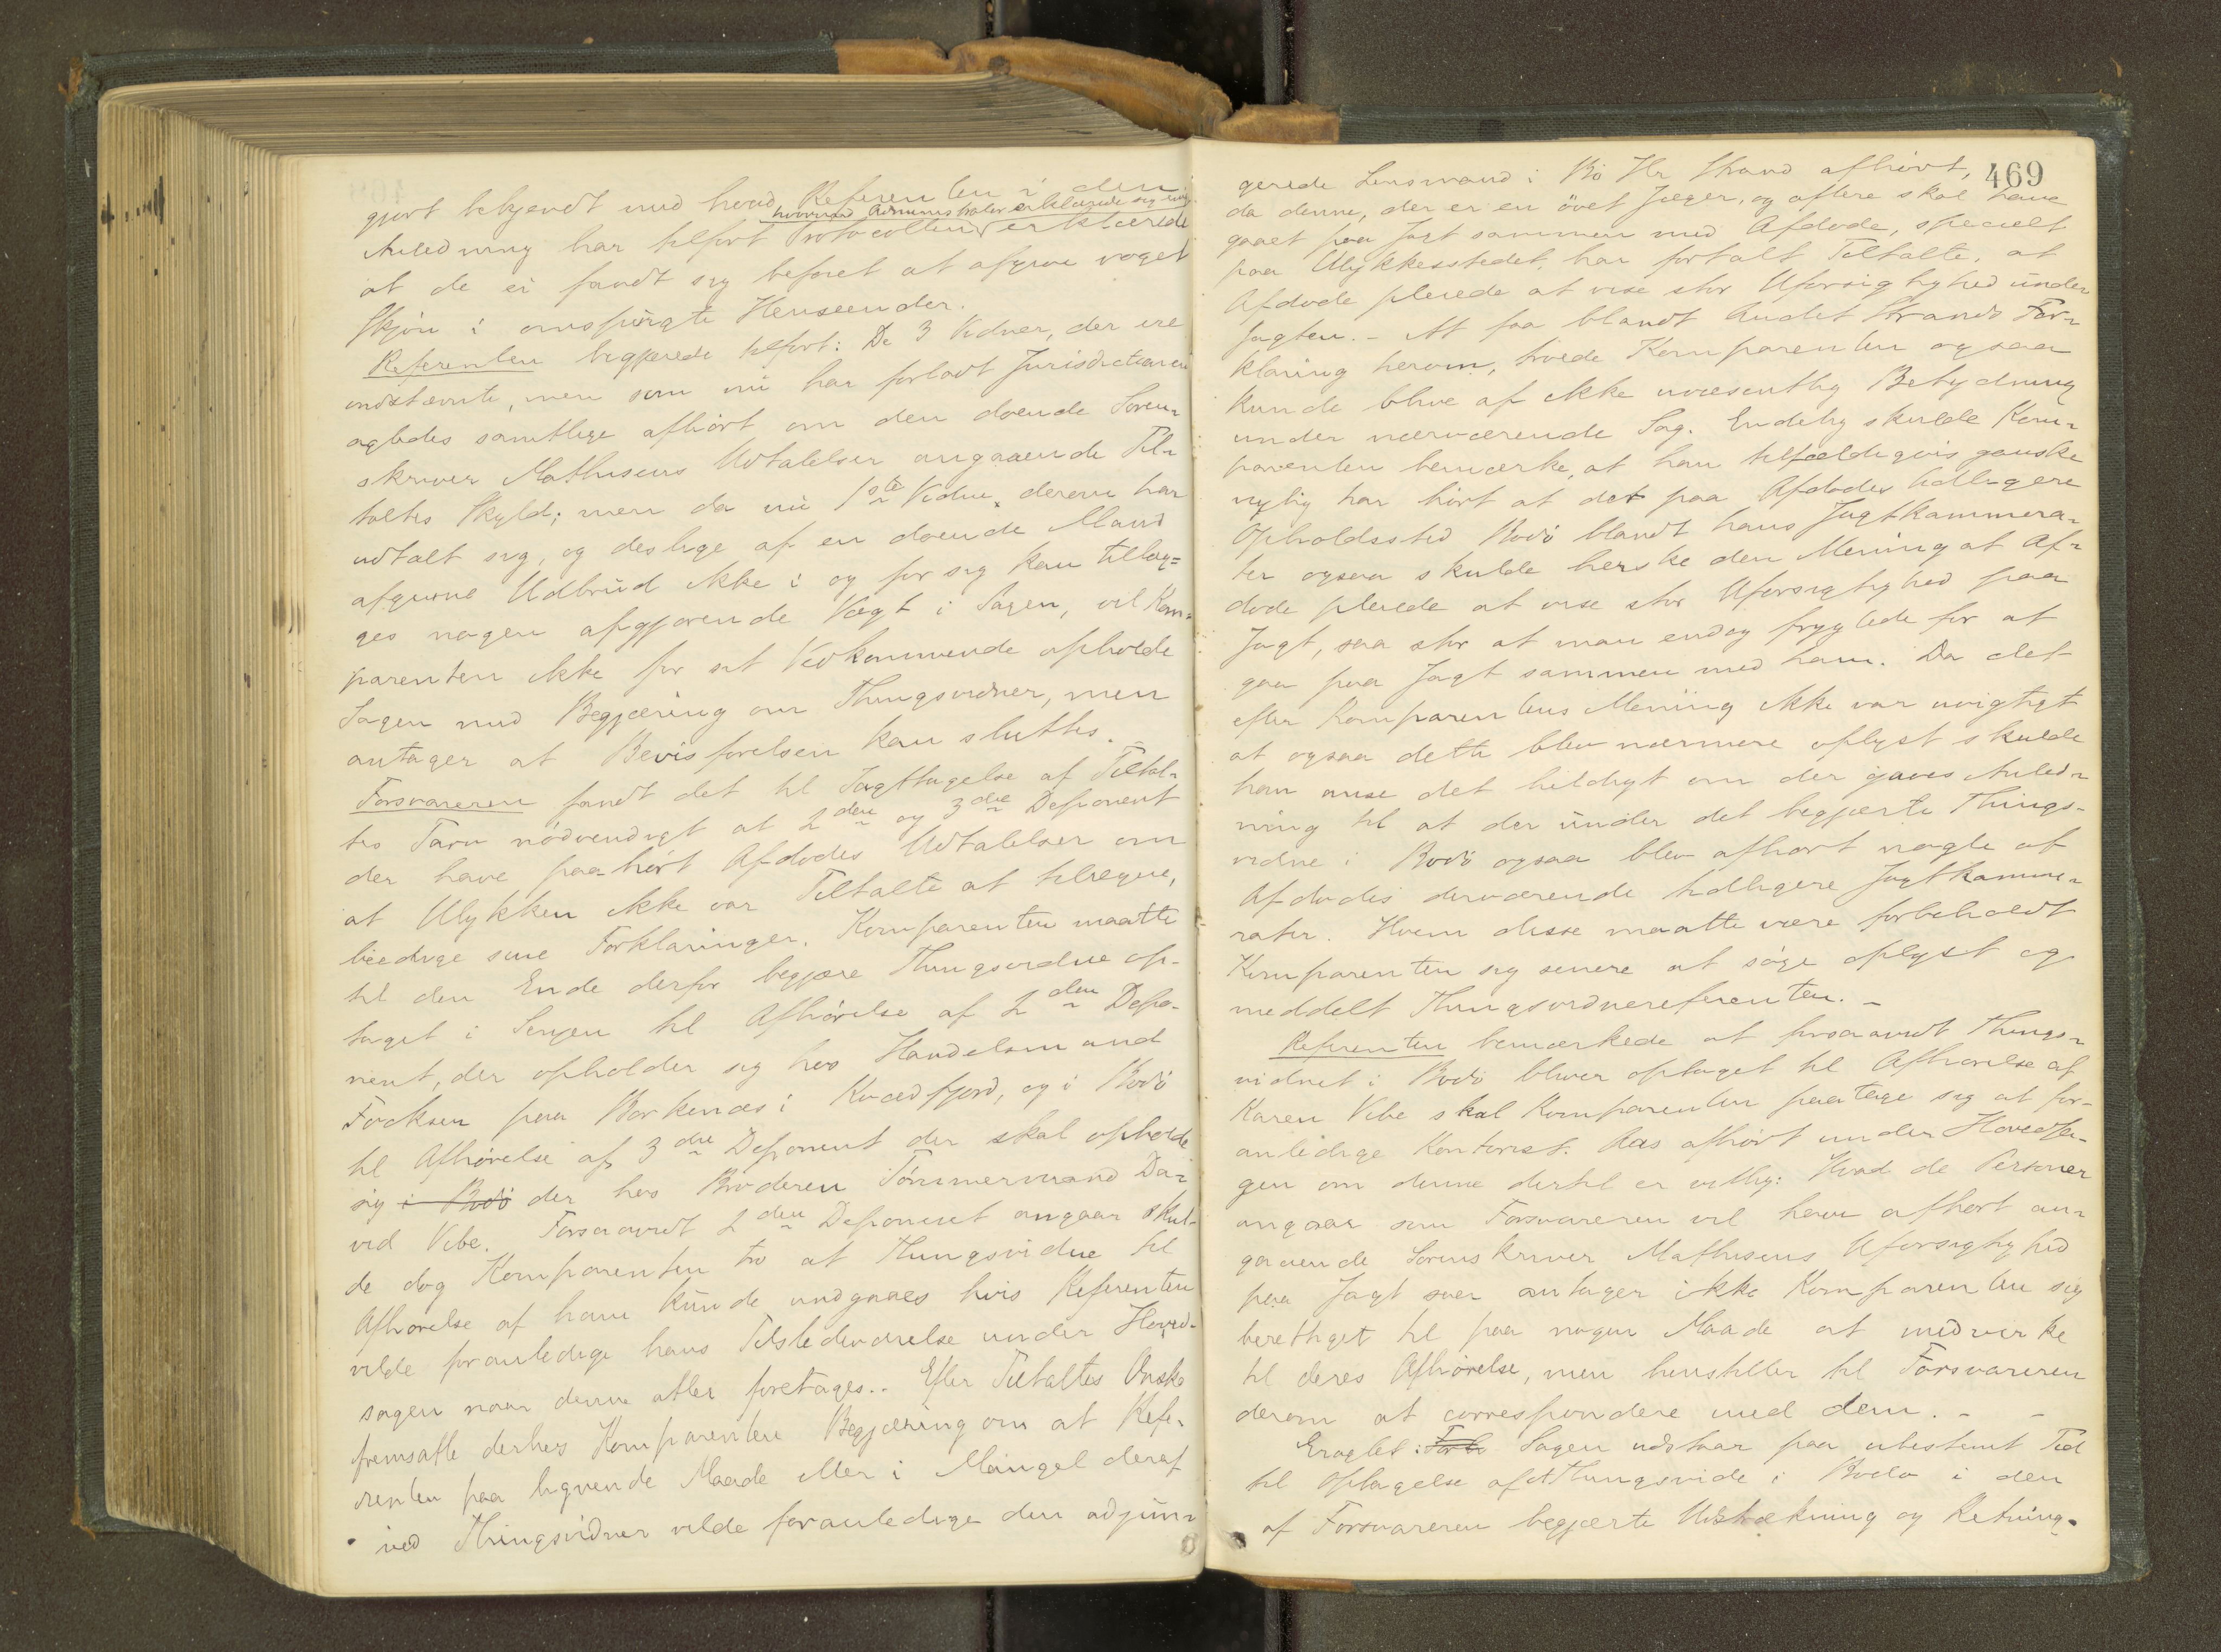 gjort bekjendt med hvad Referenten i den
hvormed Administrator erklærede sig enig
Anledning har tilført Protocollen erklærede
at de ei fandt sig beføiet at afgive noget
Skjøn i omspurgte Henseender.
Referenten begjærede tilført: De 3 Vidner, der ere
indstævnte, men som nu har forladt Jurisdictionen
agtedes samtlige afhørt om den døende Soren-
skriver Mathisens Udtalelser angaaende Til-
taltes Skyld; men da nu 1ste Vidne derom har
udtalt sig, og deslige af en døende Mand
afgivne Udbrud ikke i og for sig kan tillæg-
ges nogen afgjørende Vægt i Sagen, vil Kom-
parenten ikke for sit Vedkommende opholde
Sagen med Begjæring om Thingsvidner, men
antager at Bevisførelsen kan sluttes.
Forsvareren fandt det til Iagttagelse af Tiltal-
tes Tarv nødvendigt at 2den og 3die Deponent
der have paahørt Afdødes Udtalelser om
at Ulykken ikke var Tiltalte at tilregne,
beedige sine Forklaringer. Komparenten maatte
til den Ende derfor begjære Thingsvidne op-
taget i Senjen til Afhørelse af 2den Depo-
nent, der opholder sig hos Handelsmand
Focksen paa Borkenæs i Kvædfjord, og i Bodø
til Afhørelse af 3die Deponent der skal opholde
sig i Bodø der hos Broderen Tømmermand Da-
vid Vibe. Forsaavidt 2den Deponent angaar skul-
de dog Komparenten tro at Thingsvidne til
Afhørelse af ham kunde undgaaes hvis Referenten
vilde foranledige hans Tilstedeværelse under Hoved-
sagen naar denne atter foretages.. Efter Tiltaltes Ønske
fremsatte derhos Komparenten Begjæring om at Refe-
renten paa lignende Maade eller i Mangel deraf
ved Thingsvidner vilde foranledige den adjun-
469
gerede Lensmand i Bø Hr Strand afhørt,
da denne, der er en øvet Jæger, og oftere skal have
gaaet paa Jagt sammen med Afdøde, specielt
paa Ulykkesstedet, har fortalt Tiltalte, at
Afdøde pleiede at vise stor Uforsigtighed under
Jagten. - At faa blandt Andet Strands For-
klaring herom, troede Komparenten ogsaa
kunde blive af ikke uvæsentlig Betydning
under nærværende Sag. Endelig skulde Kom-
parenten bemærke, at han tilfældigvis ganske
nylig har hørt at det paa Afdødes tidligere
Opholdssted Bodø blandt hans Jagtkammera-
ter ogsaa skulde herske den Mening at Af-
døde pleiede at vise stor Uforsigtighed paa
Jagt, saa stor at man endog frygtede for at
gaa paa Jagt sammen med ham. Da det
efter Komparentens Mening ikke var uvigtigt
at ogsaa dette blev nærmere oplyst skulde
han anse det heldigt om der gaves Anled-
ning til at der under det begjærte Things-
vidne i Bodø ogsaa blev afhørt nogle af
Afdødes derværende tidligere Jagtkamme-
rater. Hvem disse maatte være forbeholdt
Komparenten sig senere at søge oplyst og
meddelt Thingsvidnereferenten. -
Referenten bemærkede at forsaavidt Things-
vidnet i Bodø bliver optaget til Afhørelse af
Karen Vibe skal Komparenten paatage sig at for-
anledige Kontorist. Aas afhørt under Hovedsa-
gen om denne dertil er villig: Hvad de Personer
angaar som Forsvareren vil have afhørt an-
gaaende Sorenskriver Mathisens Uforsigtighed
paa Jagt saa antager ikke Komparenten sig
berettiget til paa nogen Maade at medvirke
til deres Afhørelse, men henstiller til Forsvareren
derom at correspondere med dem. - -
Eragtet: Forh Sagen udstaar paa ubestemt Tid
til Optagelse af et Thingsvide i Bodø i den
af Forsvareren begjærte Udstrækning og Retning.